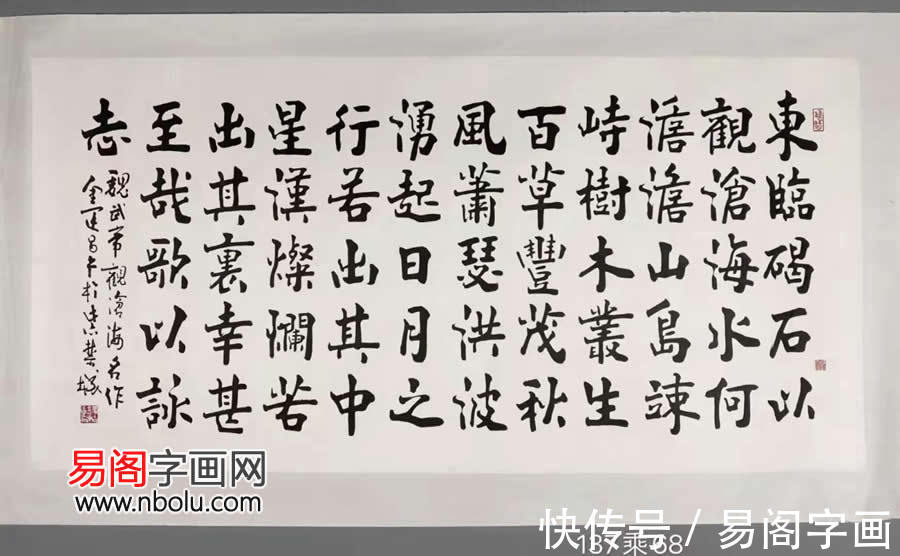 東臨碣石以
觀滄海水何
澹澹山島竦
峙樹木叢生
百草豐茂秋
風蕭瑟洪波
湧起日月之
行若出其中
星漢燦爛若
出其裏幸甚
至哉歌以詠
志
魏武帝觀滄海名作
金運昌
易阁字画网
www.nbolu.com
137乘68
快传号 / 易阁字画